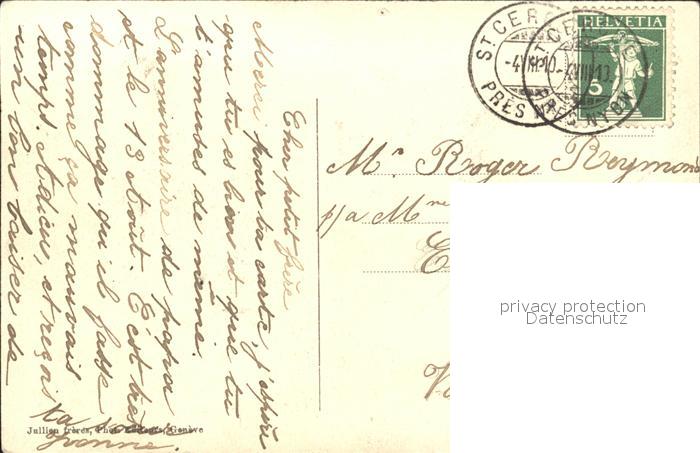 Cher petit frère
Merci pour ta carte, j'espère
que tu es bien et que tu
t'amuses de même.
L'anniversaire de papa
est le 13 août. C'est très
dommage qu'il fasse
comme ça mauvais
temps. Adieu, et reçois
un bon baiser de
ta sœur
Yvonne.
Jullien frères, Phot. Editeurs, Genève
ST CERGUES
-4.VIII.10.
PRÈS NYON
ST CERGUES
-4.VIII.10.
PRÈS NYON
HELVETIA
5
Mr Roger Reymond
p/a Mme
privacy protection
Datenschutz